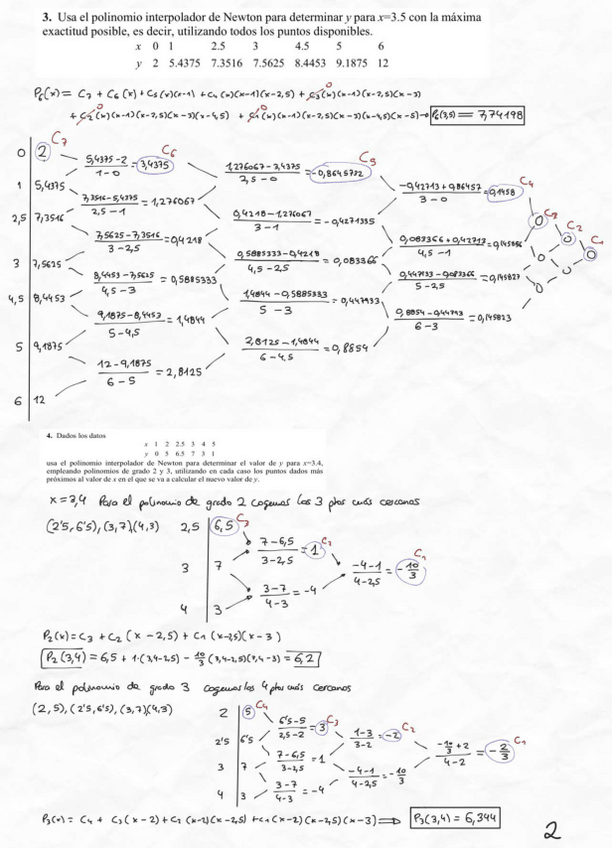 3. Usa el polinomio interpolador de Newton para determinar y para x=3.5 con la máxima
exactitud posible, es decir, utilizando todos los puntos disponibles.
x 0 1 2.5 3 4.5 5 6
y 2 5.4375 7.3516 7.5625 8.4453 9.1875 12
P₆(x) = C₇ + C₆(x) + C₅(x)(x-1) + C₄(x)(x-1)(x-2,5) + C₃(x)(x-1)(x-2,5)(x-3)
+ C₂(x)(x-1)(x-2,5)(x-3)(x-4,5) + C₁(x)(x-1)(x-2,5)(x-3)(x-4,5)(x-5) → P₆(3,5) = 7,74198
0 2 C₇
(5,4375-2)/(1-0) = 3,4375 C₆
(1,276067-3,4375)/(2,5-0) = -0,8645732 C₅
(-0,42713+0,86457)/(3-0) = 0,1458 C₄
1 5,4375
(7,3516-5,4375)/(2,5-1) = 1,276067
(0,4218-1,276067)/(3-1) = -0,4271335
0 C₃ 0 C₂ 0 C₁
2,5 7,3516
(7,5625-7,3516)/(3-2,5) = 0,4218
(0,083366+0,42713)/(4,5-1) = 0,145856
3 7,5625
(0,5885333-0,4218)/(4,5-2,5) = 0,083366
(0,447933-0,083366)/(5-2,5) = 0,145827
(8,4453-7,5625)/(4,5-3) = 0,5885333
4,5 8,4453
(1,4844-0,5885333)/(5-3) = 0,447933
(0,8854-0,447933)/(6-3) = 0,145823
(9,1875-8,4453)/(5-4,5) = 1,4844
5 9,1875
(2,8125-1,4844)/(6-4,5) = 0,8854
(12-9,1875)/(6-5) = 2,8125
6 12
4. Dados los datos
x 1 2 2.5 3 4 5
y 0 5 6.5 7 3 1
usa el polinomio interpolador de Newton para determinar el valor de y para x=3.4,
empleando polinomios de grado 2 y 3, utilizando en cada caso los puntos dados más
próximos al valor de x en el que se va a calcular el nuevo valor de y.
x = 3,4 Para el polinomio de grado 2 cogemos los 3 ptos más cercanos
(2'5, 6'5), (3,7)(4,3) 2,5 6,5 C₃
(7-6,5)/(3-2,5) = 1 C₂
3 7 (-4-1)/(4-2,5) = -10/3 C₁
(3-7)/(4-3) = -4
4 3
P₂(x) = C₃ + C₂(x-2,5) + C₁(x-2,5)(x-3)
P₂(3,4) = 6,5 + 1·(3,4-2,5) - 10/3 (3,4-2,5)(3,4-3) = 6,2
Para el polinomio de grado 3 cogemos los 4 ptos más cercanos
(2,5), (2'5,6'5), (3,7)(4,3) 2 5 C₄
(6'5-5)/(2,5-2) = 3 C₃ (1-3)/(3-2) = -2 C₂
2'5 6'5 (-10/3+2)/(4-2) = -2/3 C₁
(7-6,5)/(3-2,5) = 1
3 7 (-4-1)/(4-2,5) = -10/3
(3-7)/(4-3) = -4
4 3
P₃(x) = C₄ + C₃(x-2) + C₂(x-2)(x-2,5) + C₁(x-2)(x-2,5)(x-3) ⟹ P₃(3,4) = 6,344
2